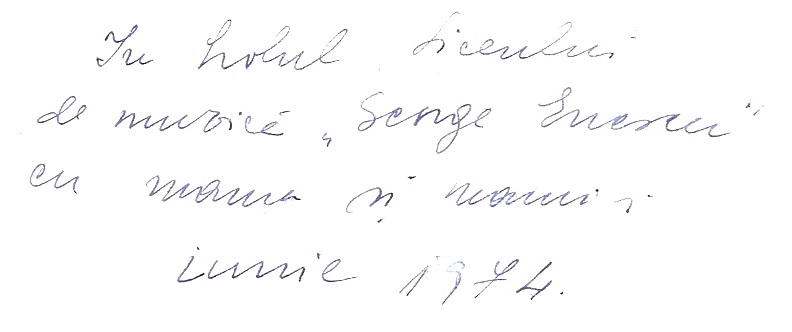 In holul liceului
de muzică „George Enescu”
cu mama și mami;
iunie 1974.